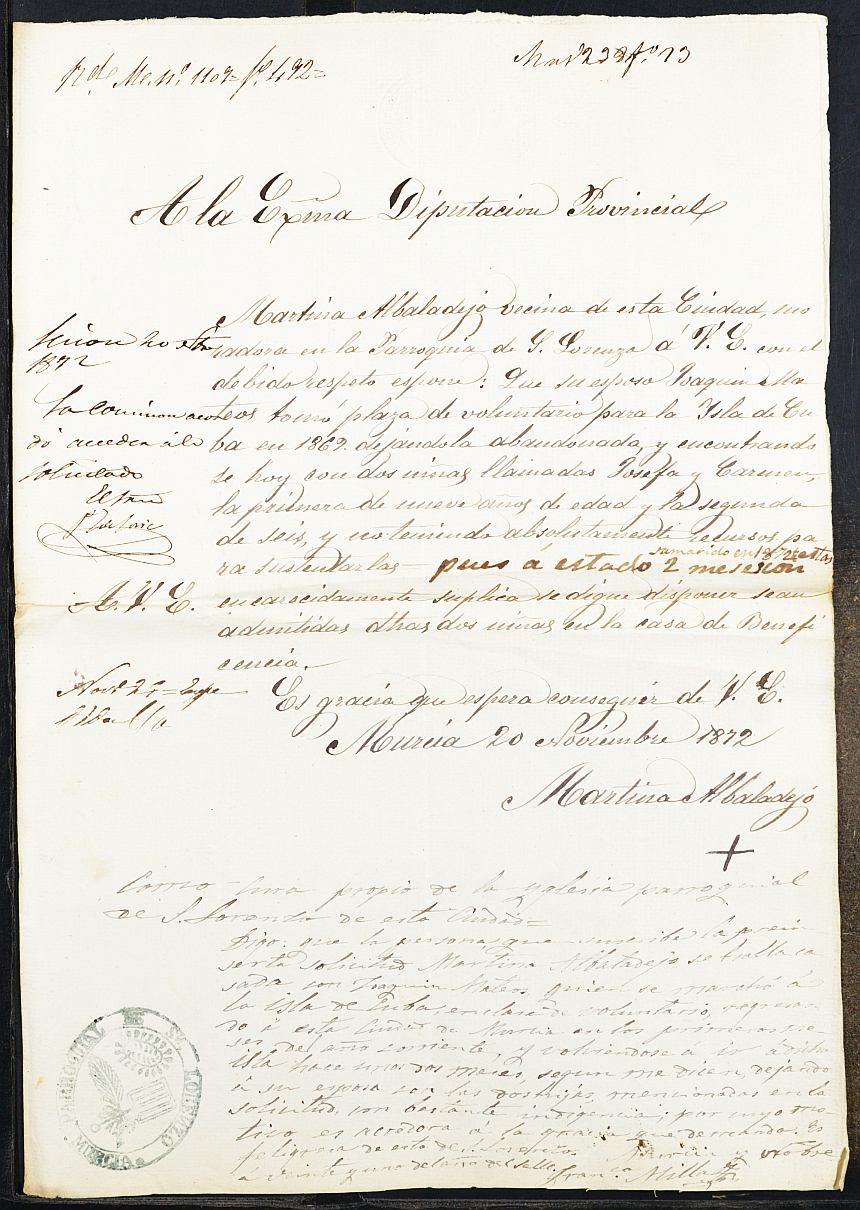 Me. nº. 1107= fº. 492=
fº. 73
A la Exma Diputacion Provincial
Martina Albaladejo vecina de esta Ciudad, mo
radora en la Parroquia de S. Lorenzo á V. E. con el
debido respeto espone: Que su esposo Joaquin Ma
teos tomó plaza de voluntario para la Isla de Cu
ba en 1869. dejándola abandonada, y encontrando
se hoy con dos niñas llamadas Josefa y Carmen,
la primera de nueve años de edad y la segunda
de seis, y no teniendo absolutamente recursos pa
ra sustentarlas pues á estado 2 meses con
su marido en 1872
A. V. E. encarecidamente suplica se digne disponer sean
admitidas dhas dos niñas en la casa de Benefi
cencia.
Es gracia que espera conseguir de V. E.
Murcia 20 Noviembre 1872
Martina Albaladejo
+
1872
La Comision acor
dó acceder á lo
solicitado
Como Cura propio de la Yglesia parroquial
de S. Lorenzo de esta Ciudad=
Digo: que la persona que suscribe la prein
serta solicitud Martina Albaladejo se halla ca
sada con Joaquin Mateos quien se marchó á
la Isla de Cuba, en clase de voluntario, regresan
do á esta Ciudad de Murcia en los primeros me
ses del año corriente, y volviendose á ir á dicha
Isla hace unos dos meses, segun me dicen, dejando
á su esposa con las dos hijas, mencionadas en la
solicitud, con bastante indigencia; por cuyo mo
tivo es acredora á la gracia que demanda. Es
feligresa de esta de S. Lorenzo. Murcia y Nobre
á veinte y uno del año del sello.
PARROQUIAL DE S. LORENZO
MURCIA